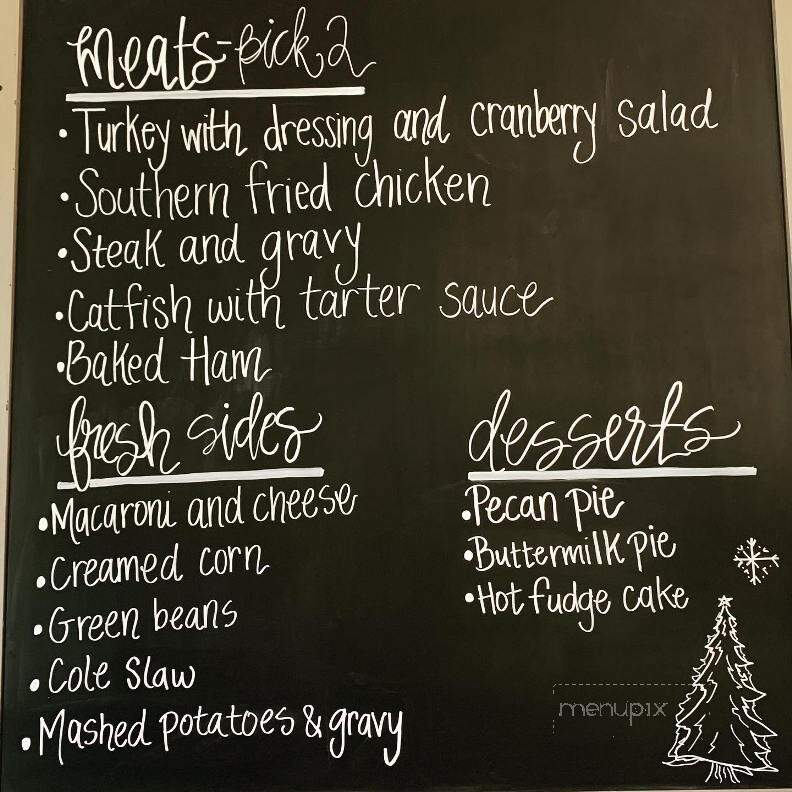 meats-pick 2
• Turkey with dressing and cranberry salad
• Southern fried chicken
• Steak and gravy
• Catfish with tarter sauce
• Baked Ham
fresh sides
• Macaroni and cheese
• Creamed corn
• Green beans
• Cole Slaw
• Mashed potatoes & gravy
desserts
• Pecan pie
• Buttermilk pie
• Hot fudge cake
menupix